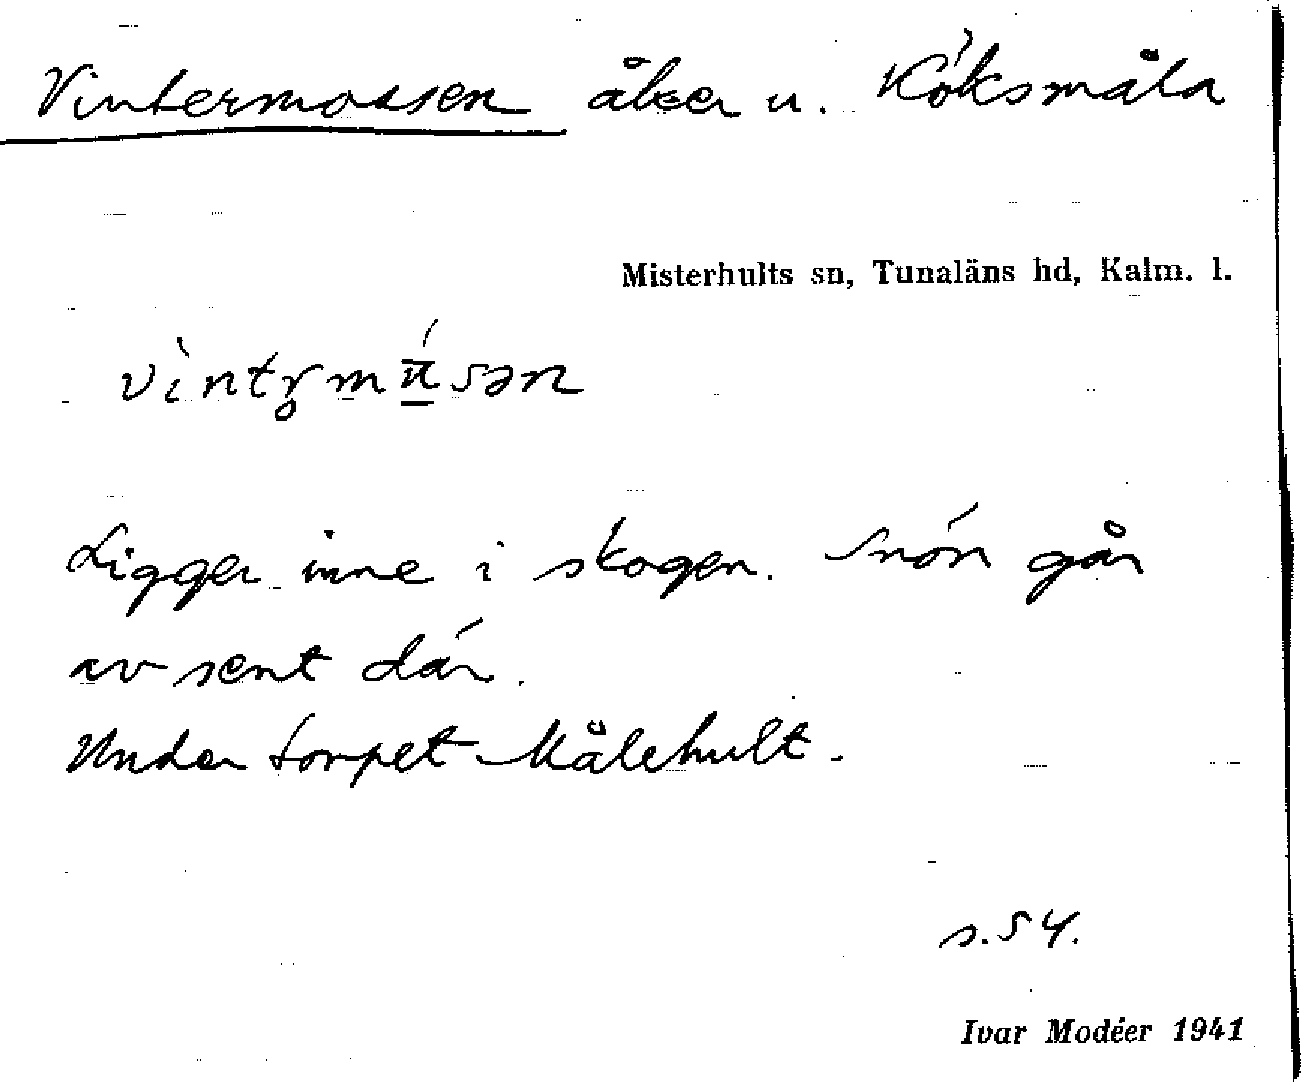 Vintermossen åker u. Köksmåla
Misterhults sn, Tunaläns hd, Kalm. l.
Ligger inne i skogen. Snön går
av sent där.
Under torpet Målehult.
s. 54.
Ivar Modéer 1941